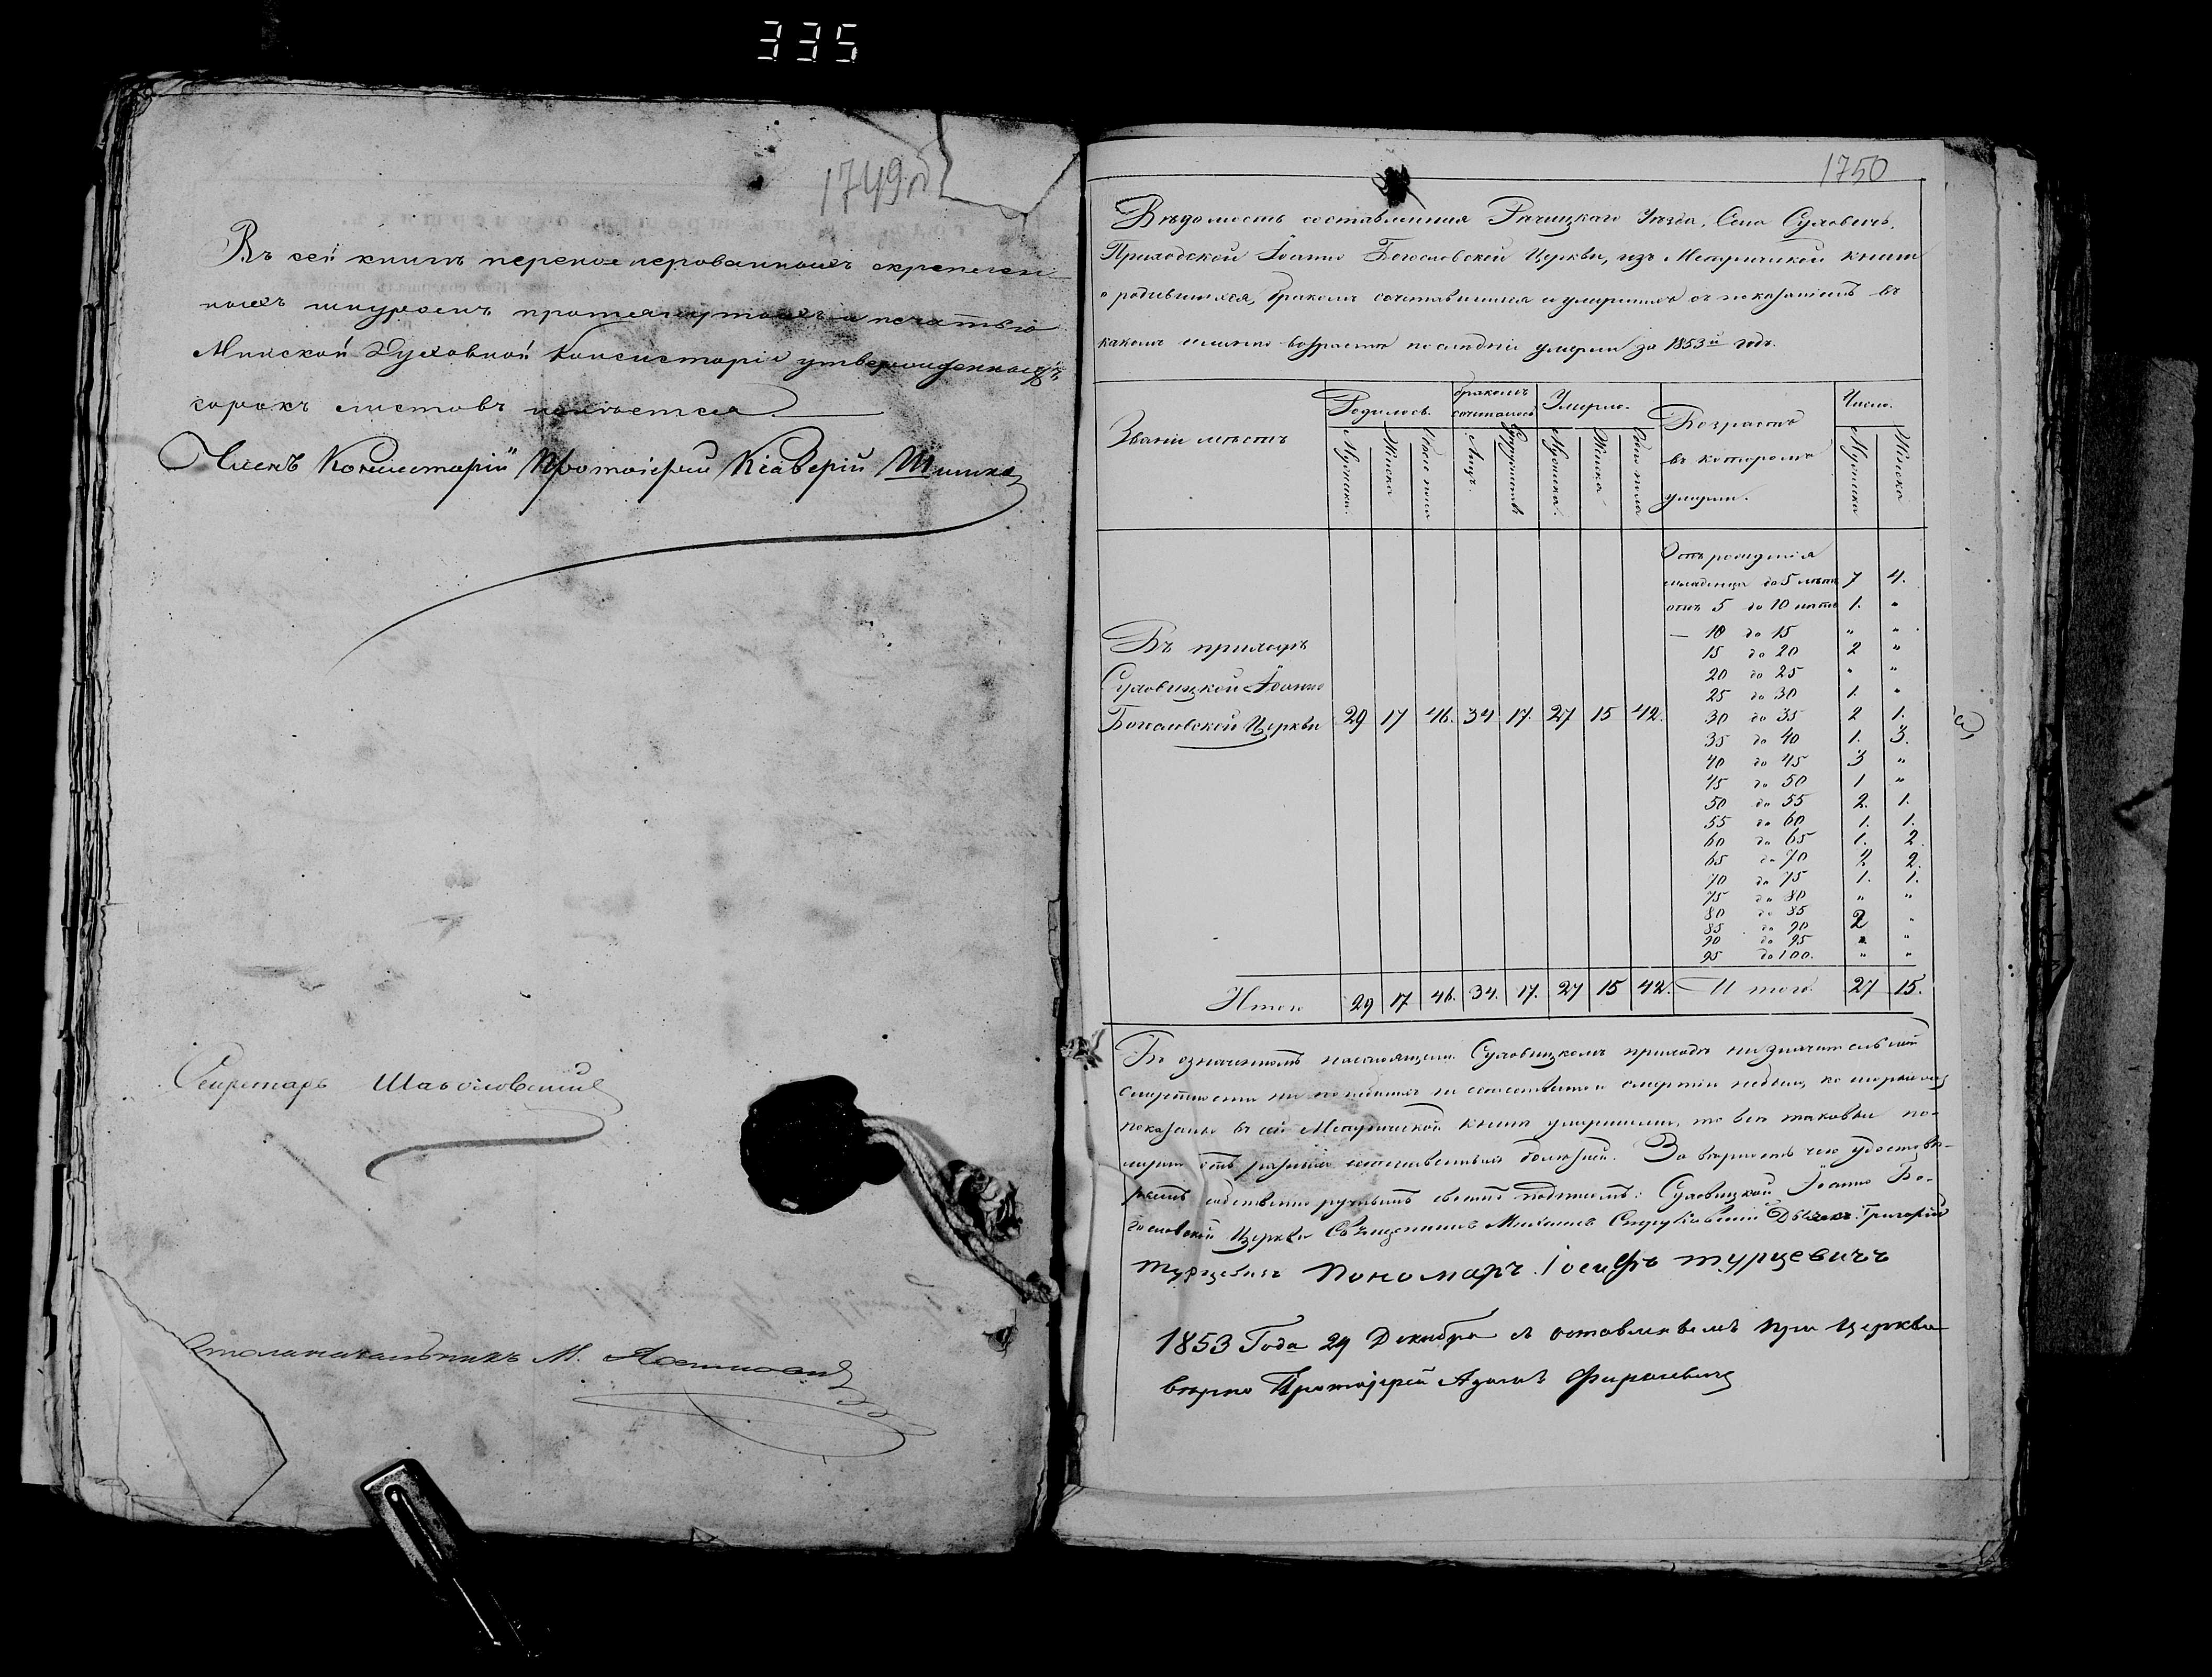 335
1749об
Въ сей книгѣ перенумерованныхъ скрѣплен
ныхъ шнуромъ протянутыхъ и печатью
Минской Духовной Консисторіи утвержденныхъ
сорокъ листовъ имѣется
Членъ Консисторіи Протоіерей Ксаверій Шишка
Секретарь
Столоначальникъ М.
1750
Вѣдомость составленная Рѣчицкаго Уѣзда, Села Суховичъ,
Приходской Іоанно Богословской Церкви, изъ Метрической книги
о родившихся, бракомъ сочетавшихся и умершихъ съ показаніемъ въ
какомъ именно возрастѣ послѣдніе умерли за 1853й годъ.
Званіе мѣстъ
Родилось.
бракомъ сочеталось
Умерло.
Возрастъ
въ которомъ
умерли.
Число.
Мужеска.
Женска
Обоего пола
Лицъ.
Супружествъ
Мужеска.
Женска
Обоего пола
Мужеска
Женска
Отъ рожденія
младенца до 5 лѣтъ 7 4.
отъ 5 до 10 лѣтъ 1. "
— 10 до 15 " "
15 до 20 2 "
20 до 25 " "
25 до 30 1. "
30 до 35 2 1.
35 до 40 1. 3.
40 до 45 3 "
45 до 50 1 "
50 до 55 2. 1.
55 до 60 1. 1.
60 до 65 1. 2.
65 до 70 2 2.
70 до 75 1. 1.
75 до 80 " "
80 до 85 2 "
85 до 90
90 до 95 " "
95 до 100. " "
Въ приходѣ
Суховицкой Іоанно
Богословской Церкви 29 17 46. 34 17. 27 15 42.
Итого 29 17 46. 34. 17. 27 15 42. Итого. 27 15.
Въ означенномъ настоящемъ Суховицкомъ приходѣ незначительной
смертности смертіи небыло, которые
показаны въ сей Метрической книгѣ умершими, то всѣ таковые по-
мерли отъ разныхъ болѣзней. Въ вѣрности чего удостовѣ-
ряемъ собственноручнымъ своимъ подписомъ: Суховицкой Іоанно Бо-
гословской Церкви Священникъ Михаилъ Дьячекъ Григорій
Турцевичъ Пономарь Іосифъ Турцевичъ
1853 Года 29 Декабря съ оставленнымъ при церкви
вѣрно Протоіерей Адамъ